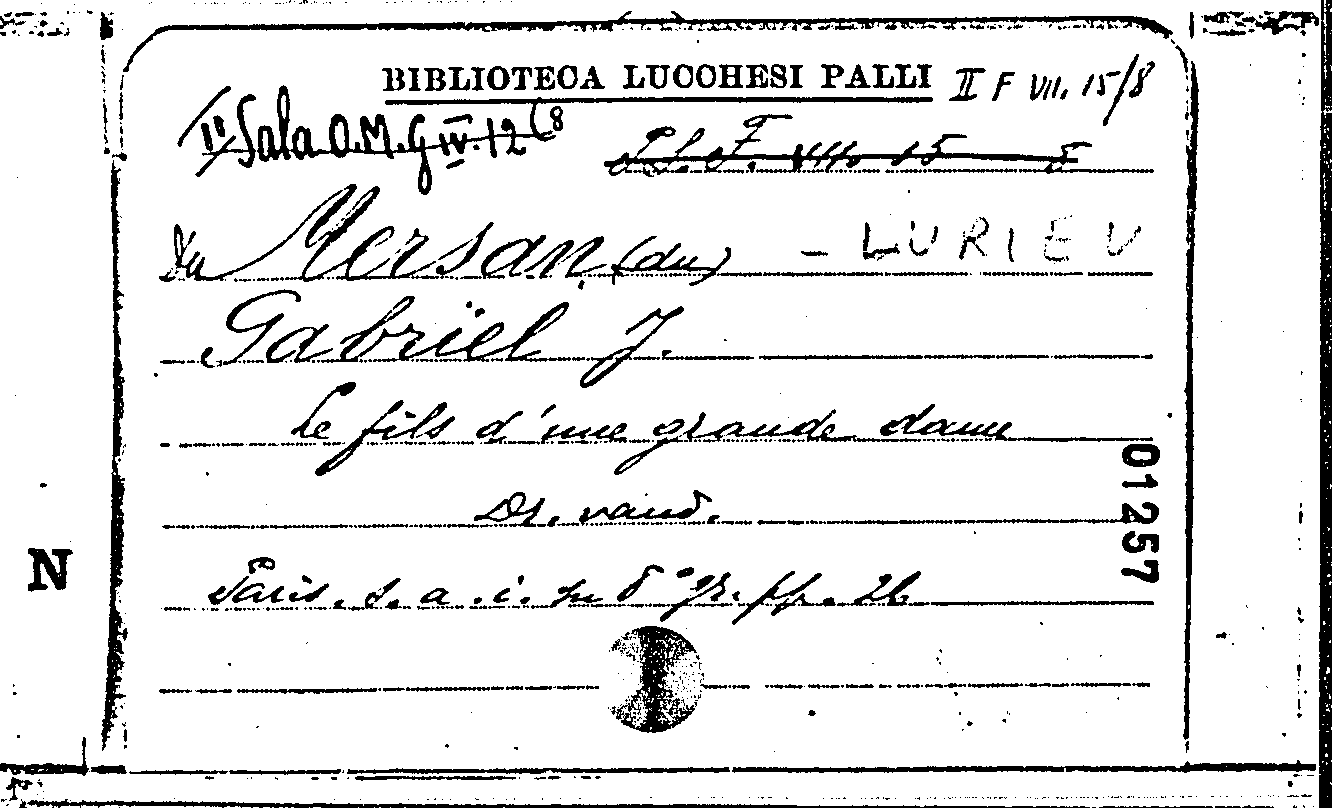 BIBLIOTECA LUCCHESI PALLI II F VII. 15/8
Iª Sala O.M.G IV. 12 (8
F. VII. 15 5
Du Mersan (du) – LURIEU
Gabriel J.
Le fils d'une grande dame
Dr. vaud.
Paris. s. a. i. in 8° gr. pp. 26
01257
N